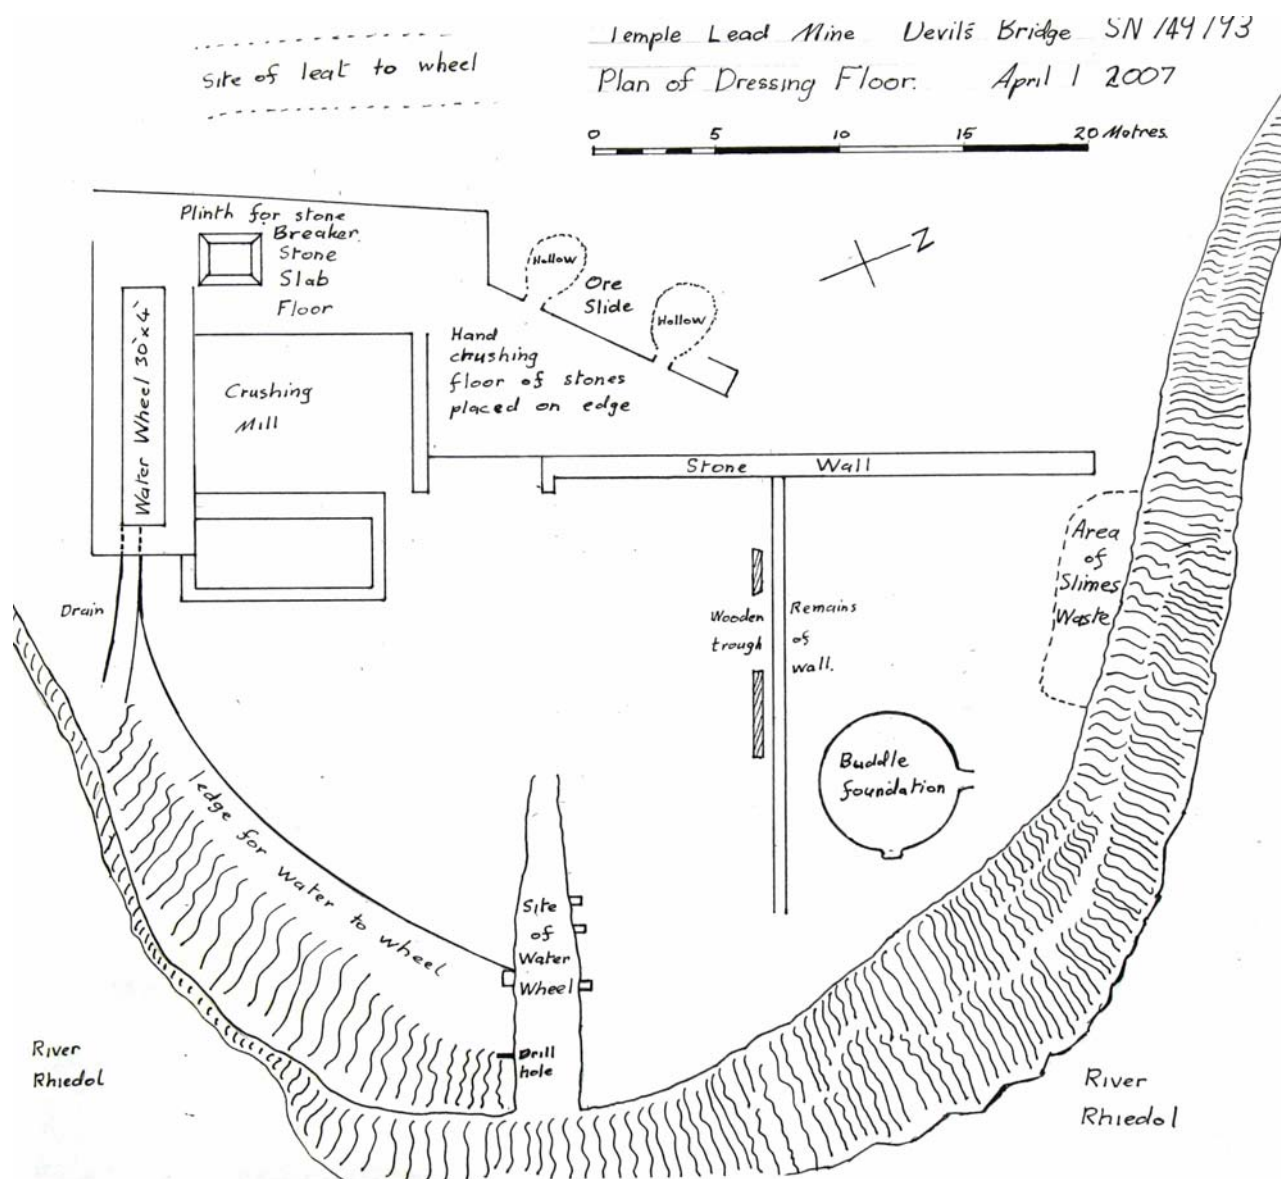 Site of leat to wheel
Temple Lead Mine Devil's Bridge SN 749793
Plan of Dressing Floor. April 1 2007
0 5 10 15 20 Metres.
N
Plinth for stone
Breaker.
Stone
Slab
Floor
Hollow
Ore
Slide
Hollow
Water Wheel 30'x4'
Crushing
Mill
Hand
crushing
floor of stones
placed on edge
Stone Wall
Area
of
Slimes
Waste
Drain
Wooden
trough
Remains
of
wall.
Buddle
foundation
ledge for water to wheel
Site
of
Water
Wheel
Drill
hole
River
Rhiedol
River
Rhiedol